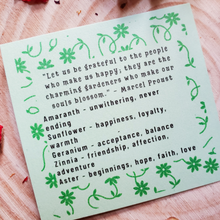 "Let us be grateful to the people
who make us happy; they are the
charming gardeners who make our
souls blossom." - Marcel Proust
Amaranth - unwithering, never
ending
Sunflower - happiness, loyalty,
warmth
Geranium - acceptance, balance
Zinnia - friendship, affection,
adventure
Aster - beginnings, hope, faith, love